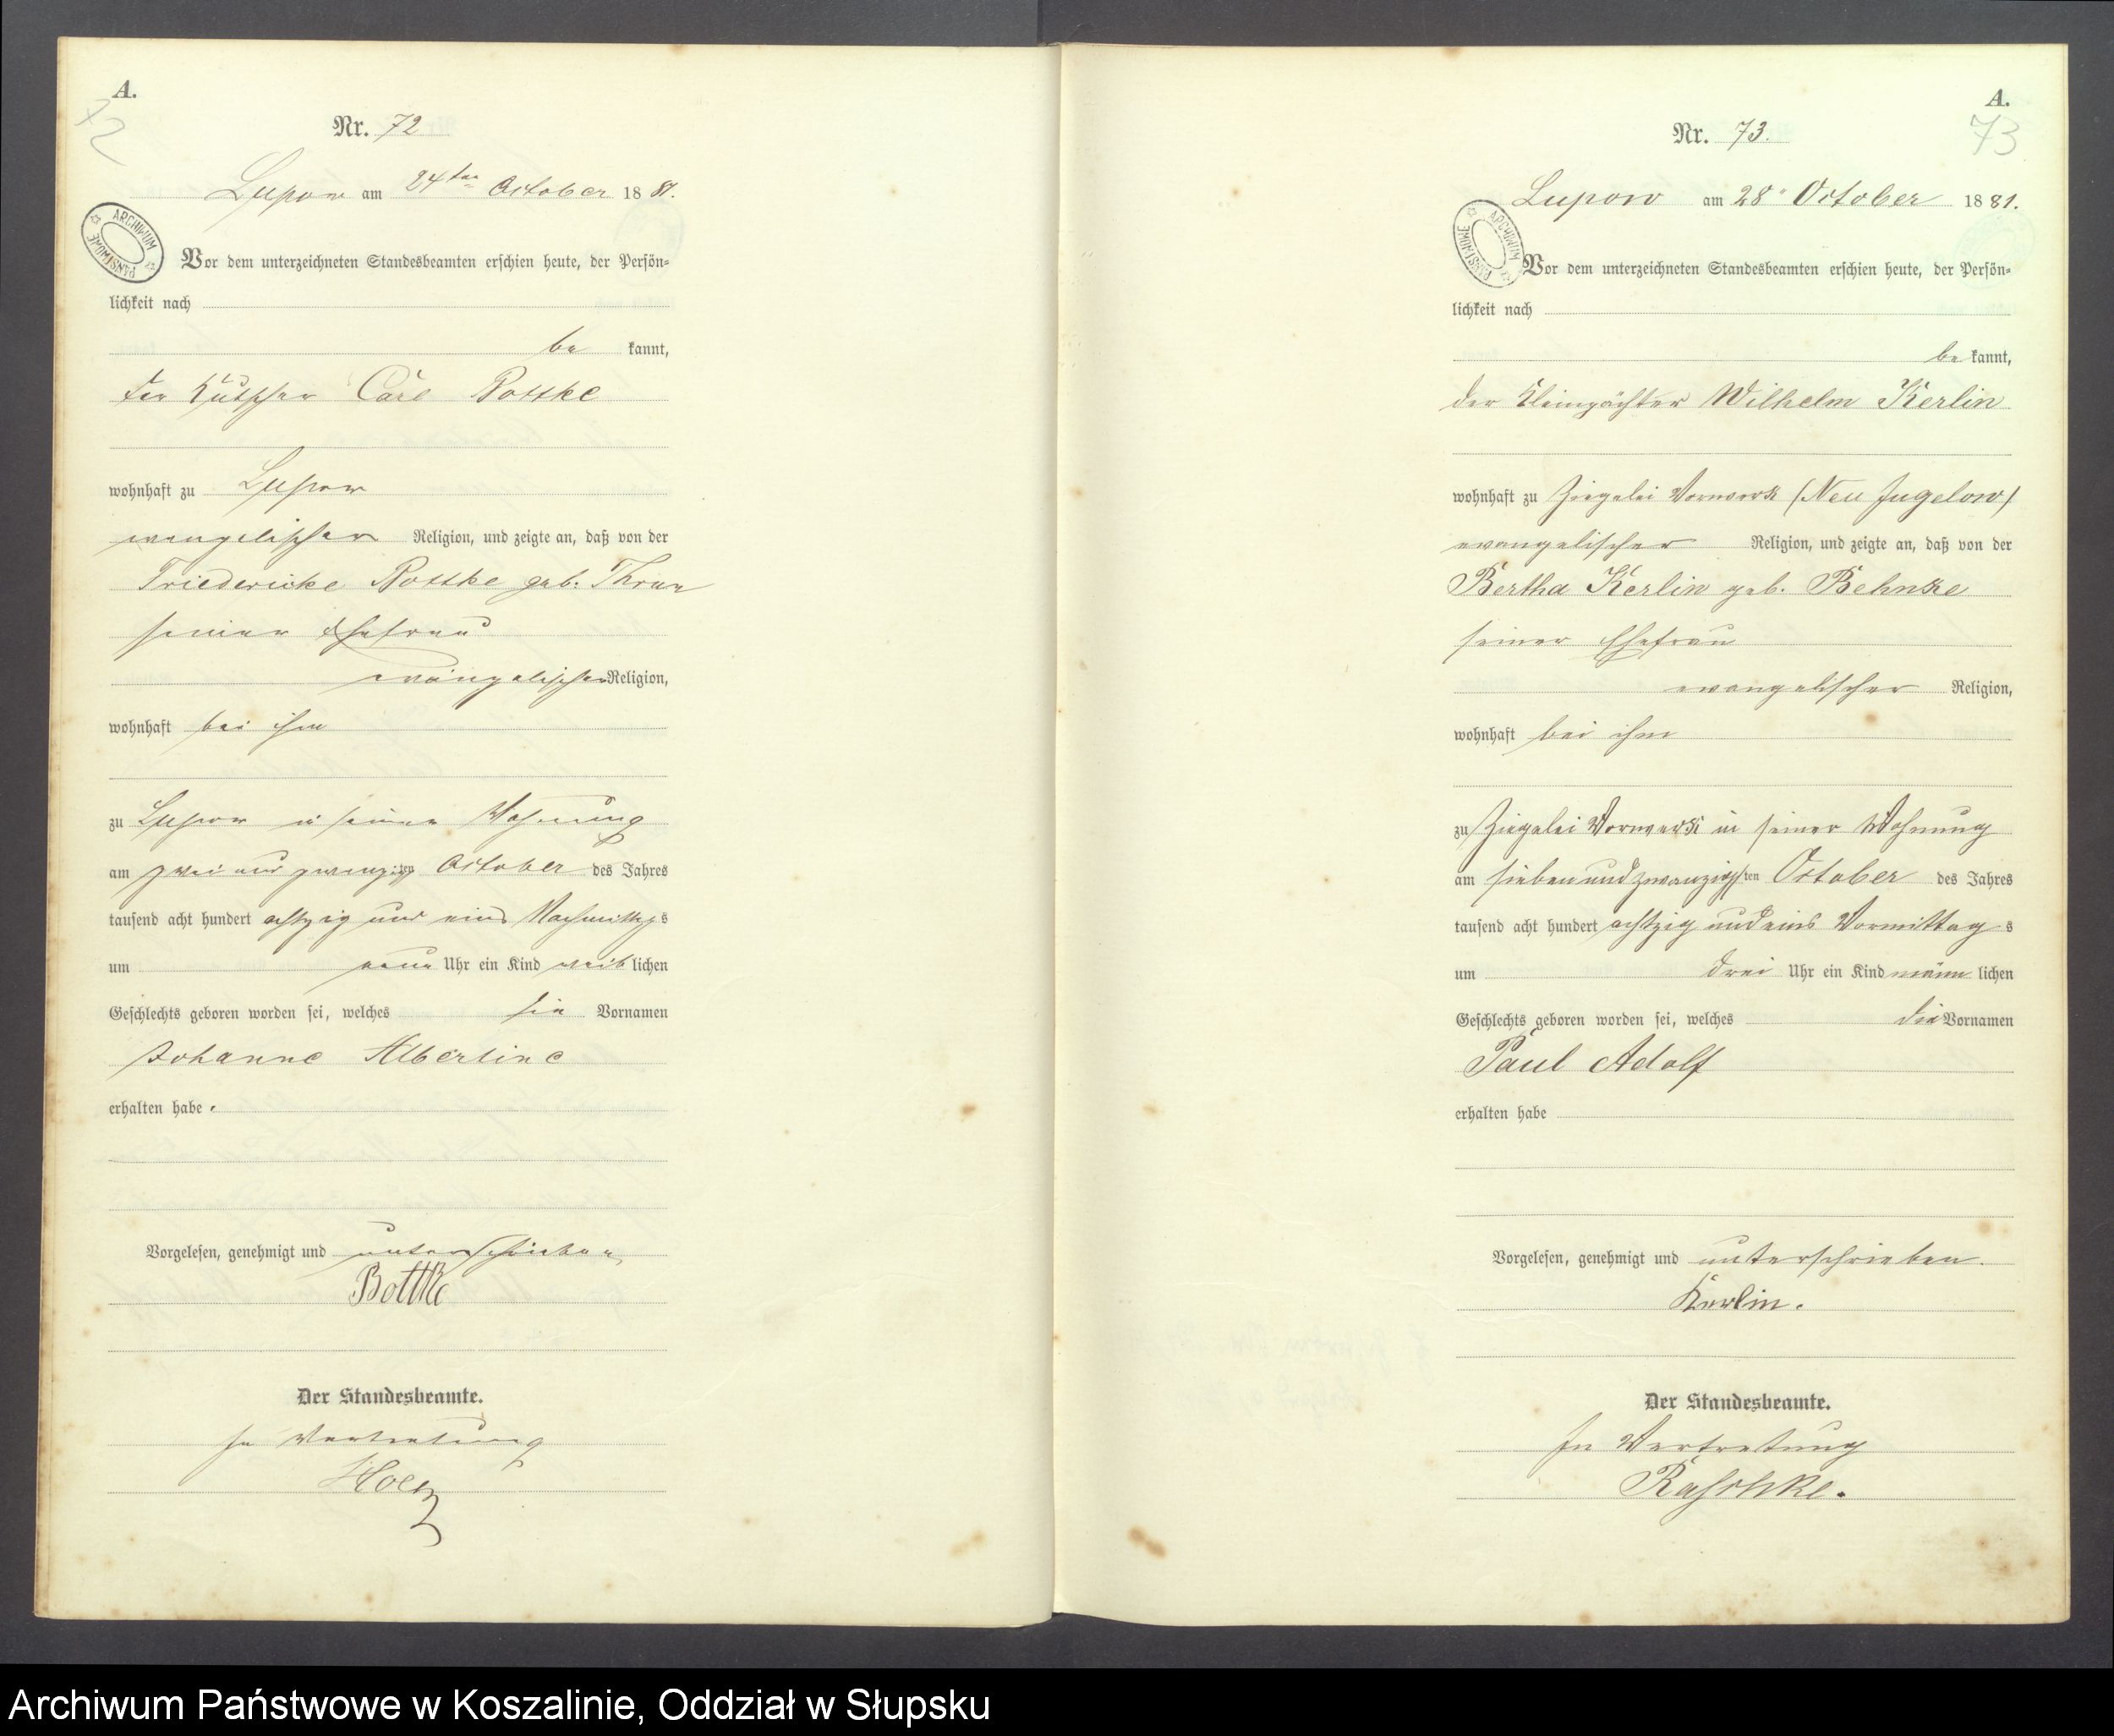 A.
72
Nr. 72
Lupow am 24ten October 1881.
ARCHIWUM PAŃSTWOWE
Vor dem unterzeichneten Standesbeamten erschien heute, der Persön-
lichkeit nach
be kannt,
der Kutscher Carl Bottke
wohnhaft zu Lupow
evangelischer Religion, und zeigte an, daß von der
Friedericke Bottke geb. Thrun
seiner Ehefrau
evangelischer Religion,
wohnhaft bei ihm
zu Lupow in seiner Wohnung
am zwei und zwanzigsten October des Jahres
tausend acht hundert achtzig und eins Nachmittags
um neun Uhr ein Kind weiblichen
Geschlechts geboren worden sei, welches die Vornamen
Johanne Albertine
erhalten habe.
Vorgelesen, genehmigt und unterschrieben
Bottke
Der Standesbeamte.
In Vertretung
A.
73
Nr. 73.
Lupow am 28. October 1881.
ARCHIWUM PAŃSTWOWE
Vor dem unterzeichneten Standesbeamten erschien heute, der Persön-
lichkeit nach
be kannt,
der Kleinpächter Wilhelm Kerlin
wohnhaft zu Ziegelei Vorwerk (Neu Jugelow)
evangelischer Religion, und zeigte an, daß von der
Bertha Kerlin geb. Behnke
seiner Ehefrau
evangelischer Religion,
wohnhaft bei ihm
zu Ziegelei Vorwerk in seiner Wohnung
am sieben und zwanzigsten October des Jahres
tausend acht hundert achtzig und eins Vormittags
um drei Uhr ein Kind männlichen
Geschlechts geboren worden sei, welches die Vornamen
Paul Adolf
erhalten habe
Vorgelesen, genehmigt und unterschrieben.
Kerlin.
Der Standesbeamte.
In Vertretung
Raschke.
Archiwum Państwowe w Koszalinie, Oddział w Słupsku